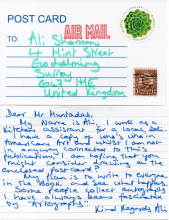 POST CARD
AIR MAIL
TO:
Ali Shannon
4 Mint Street
Godalming
Surrey
GU7 1HE
United Kingdom
Dear Mr Muntadas,
My name is Ali, I work as a
Kitchen assistant for a local Deli.
I have a copy of Who's Who in
American Art and whilst I am not
in anyway connected to this
publication, I am hoping that you
might consider drawing on the
enclosed postcard?
My plan is to write to everyone
in the book and see what happens.
Some people collect autographs,
I have always been fascinated
by "Artographs".
Kind Regards Ali